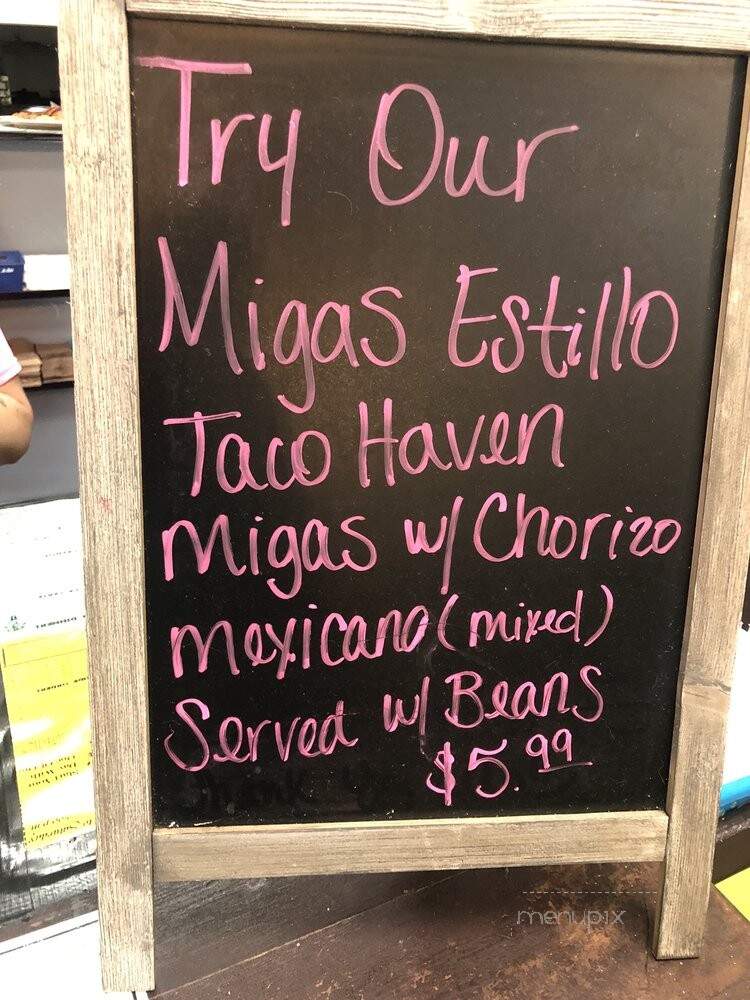 Try Our
Migas Estillo
Taco Haven
Migas w/ Chorizo
mexicano (mixed)
Served w/ Beans
$5.99
menupix